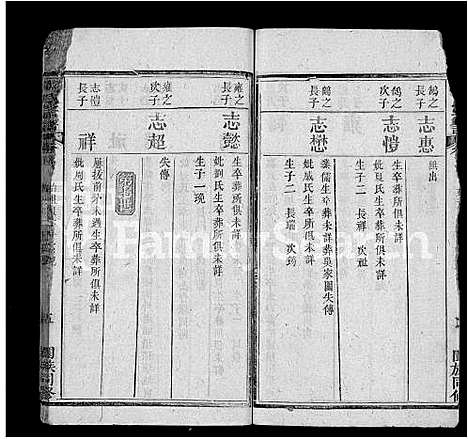 鶴之
長子
志惠
無出
鶴之
次子
志愷
妣夏氏生卒葬所俱未詳
生子二 長祥 次福
鶴之
志懋
業儒生卒葬未詳葬吳家園失傳
妣戚氏生卒葬所俱未詳
生子二 長瑞 次筠
雍之
長子
志懿
生卒葬所俱未詳
妣劉氏生卒葬所俱未詳
生子一現
雍之
次子
志超
失傳
志禮
長子
祥
屢抜前茅未遇生卒葬所俱未詳
妣周氏生卒葬所俱未詳
五
闔族同修
闔族同修
FamilySearch